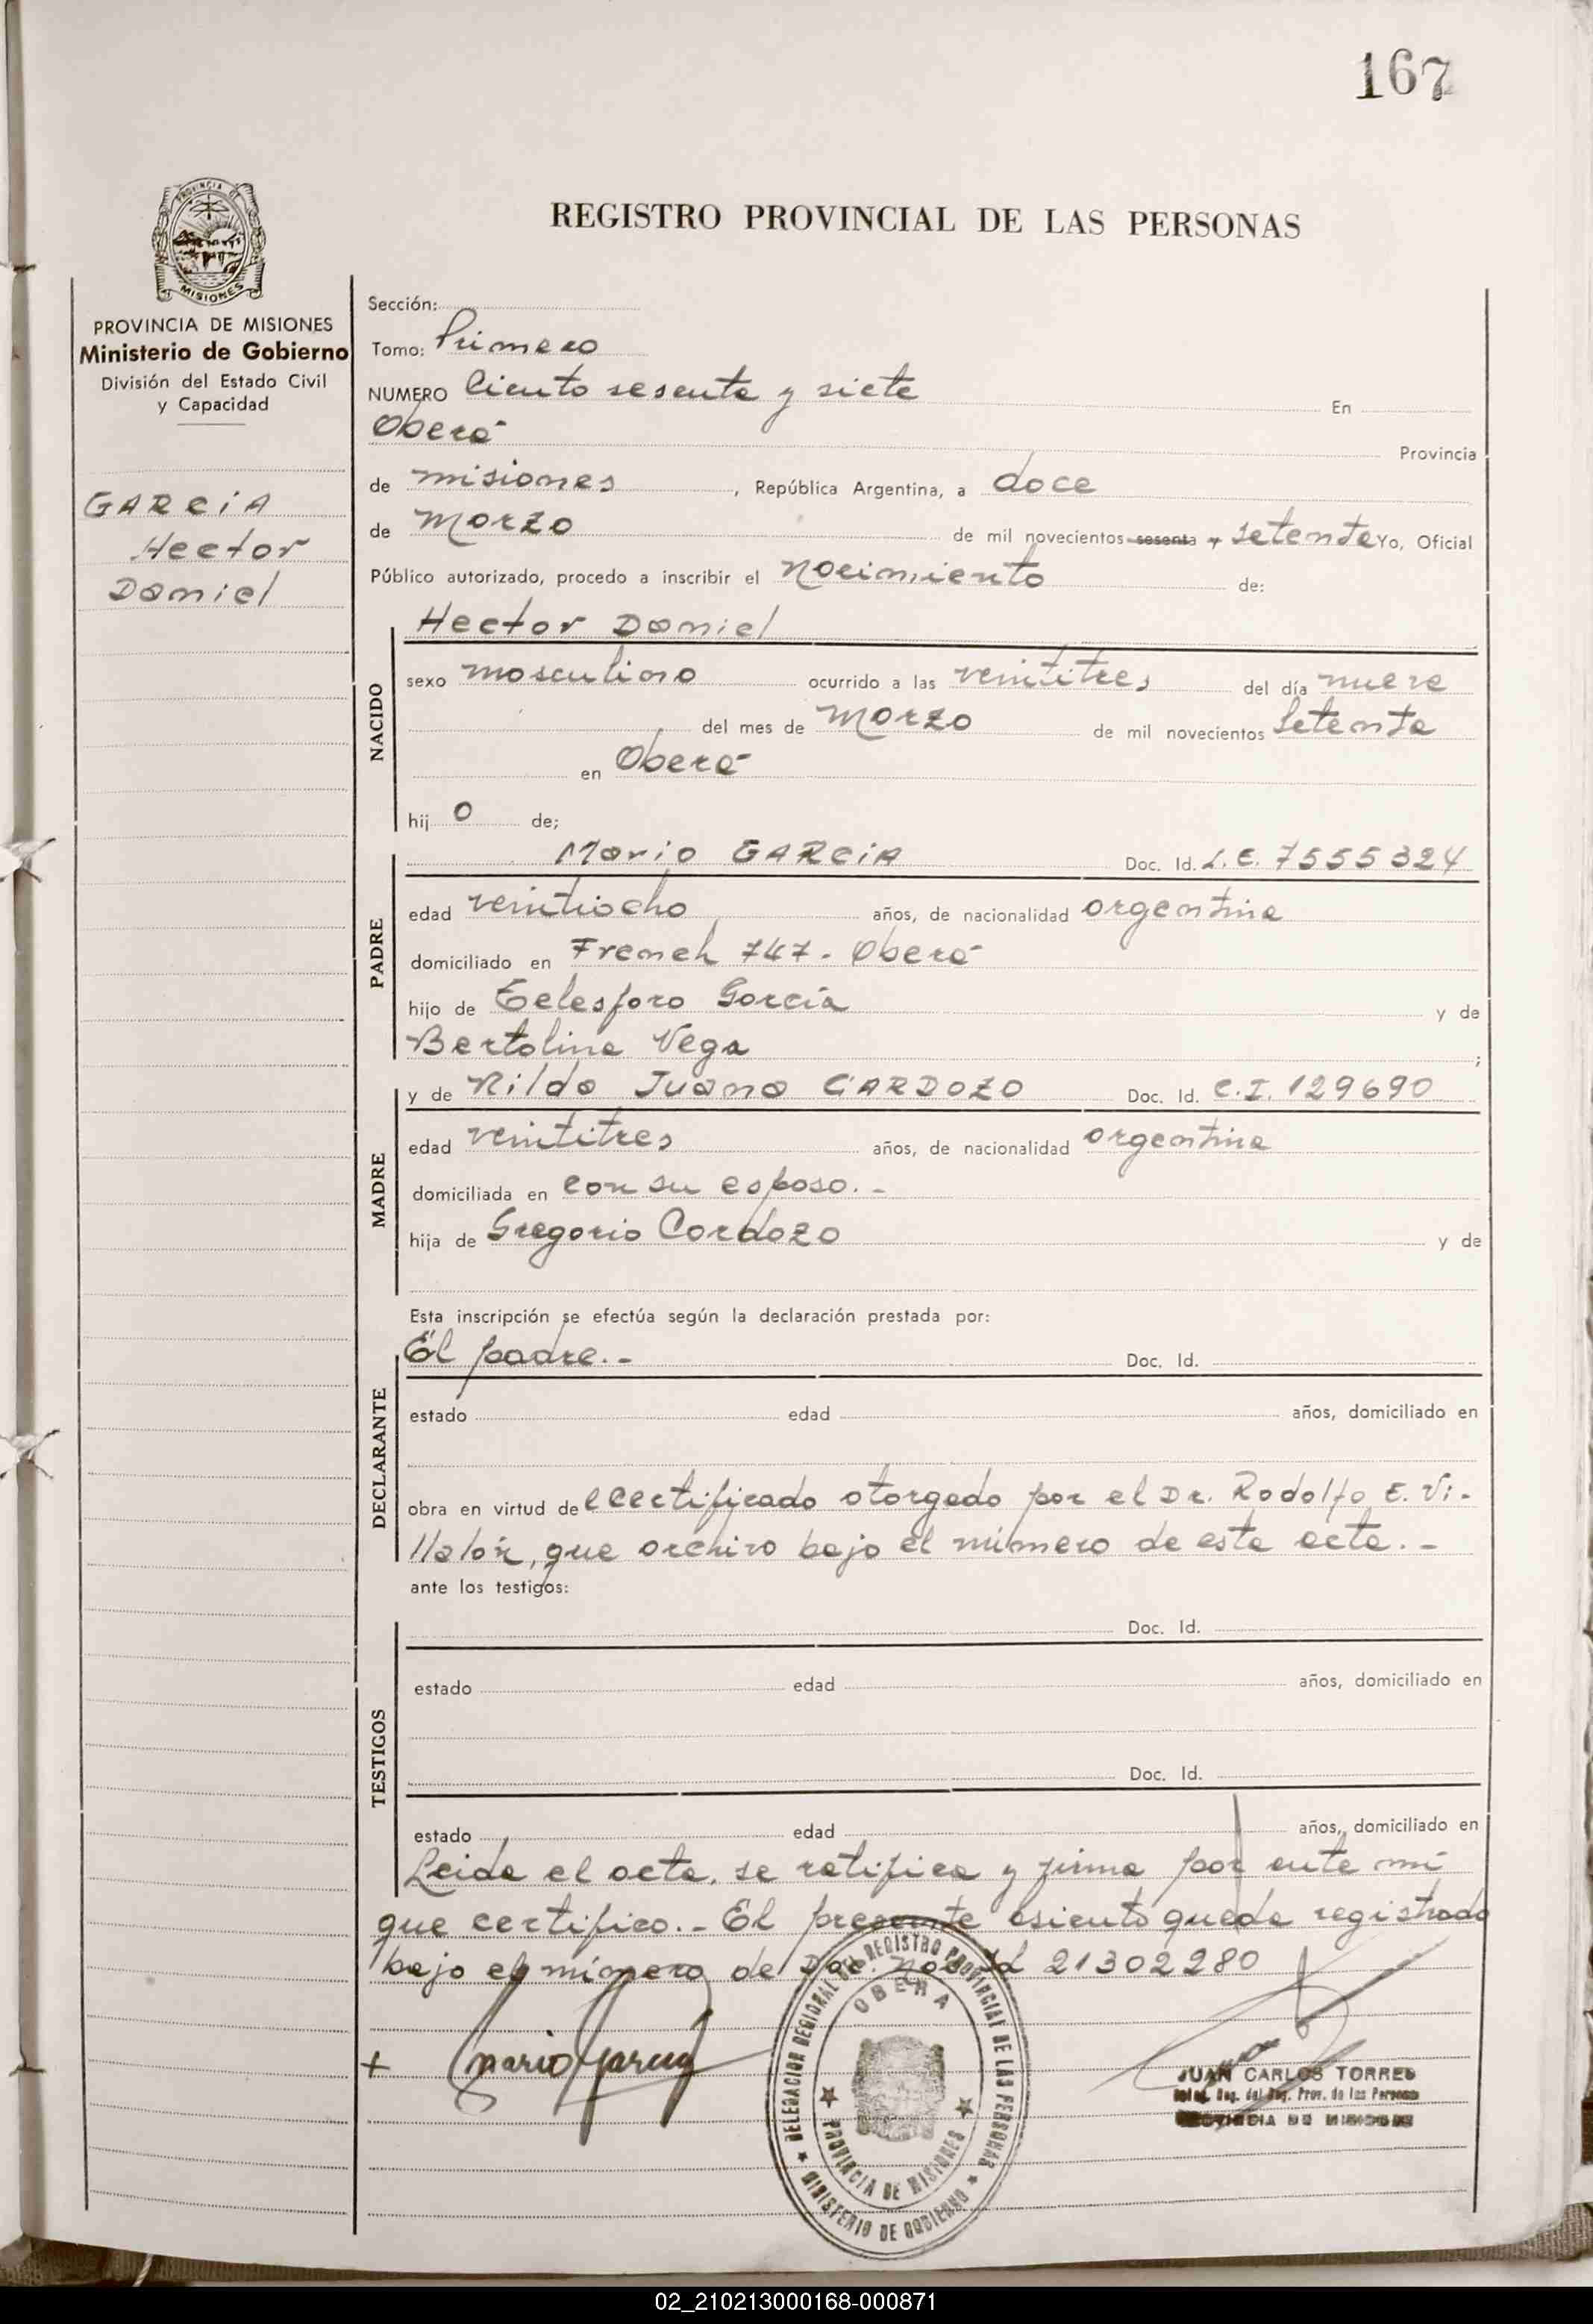 167
PROVINCIA DE
MISIONES
REGISTRO PROVINCIAL DE LAS PERSONAS
PROVINCIA DE MISIONES
Ministerio de Gobierno
División del Estado Civil
y Capacidad
GARCIA
Hector
Daniel
Sección:
Tomo: Primero
NUMERO Ciento sesenta y siete En
Oberá Provincia
de misiones, República Argentina, a doce
de Marzo de mil novecientos sesenta y setenta Yo, Oficial
Público autorizado, procedo a inscribir el nacimiento de:
Hector Daniel
NACIDO
sexo masculino ocurrido a las veintitres del día nueve
del mes de Marzo de mil novecientos setenta
en Oberá
hij o de;
PADRE
Mario GARCIA Doc. Id. L.E. 7555324
edad veintiocho años, de nacionalidad argentina
domiciliado en French 747. Oberá
hijo de Telesforo García y de
Bertolina Vega ;
MADRE
y de Nilda Juana CARDOZO Doc. Id. C.I. 129690
edad veintitres años, de nacionalidad argentina
domiciliada en con su esposo.-
hija de Gregorio Cardozo y de
Esta inscripción se efectúa según la declaración prestada por:
DECLARANTE
El padre.- Doc. Id.
estado edad años, domiciliado en
obra en virtud de certificado otorgado por el Dr. Rodolfo E. Vi-
llalón, que archivo bajo el número de esta acta.-
ante los testigos:
TESTIGOS
Doc. Id.
estado edad años, domiciliado en
Doc. Id.
estado edad años, domiciliado en
Leida el acta, se ratifica y firma por ante mí
que certifico.- El presente asiento queda registrado
bajo el número de Doc. Nac. Id 21302280
+ Mario Garcia
DELEGACION REGIONAL DEL REGISTRO PROVINCIAL DE LAS PERSONAS
MINISTERIO DE GOBIERNO
OBERA
PROVINCIA DE MISIONES
JUAN CARLOS TORRES
Reg. del Reg. Prov. de las Personas
PROVINCIA DE MISIONES
02_210213000168-000871